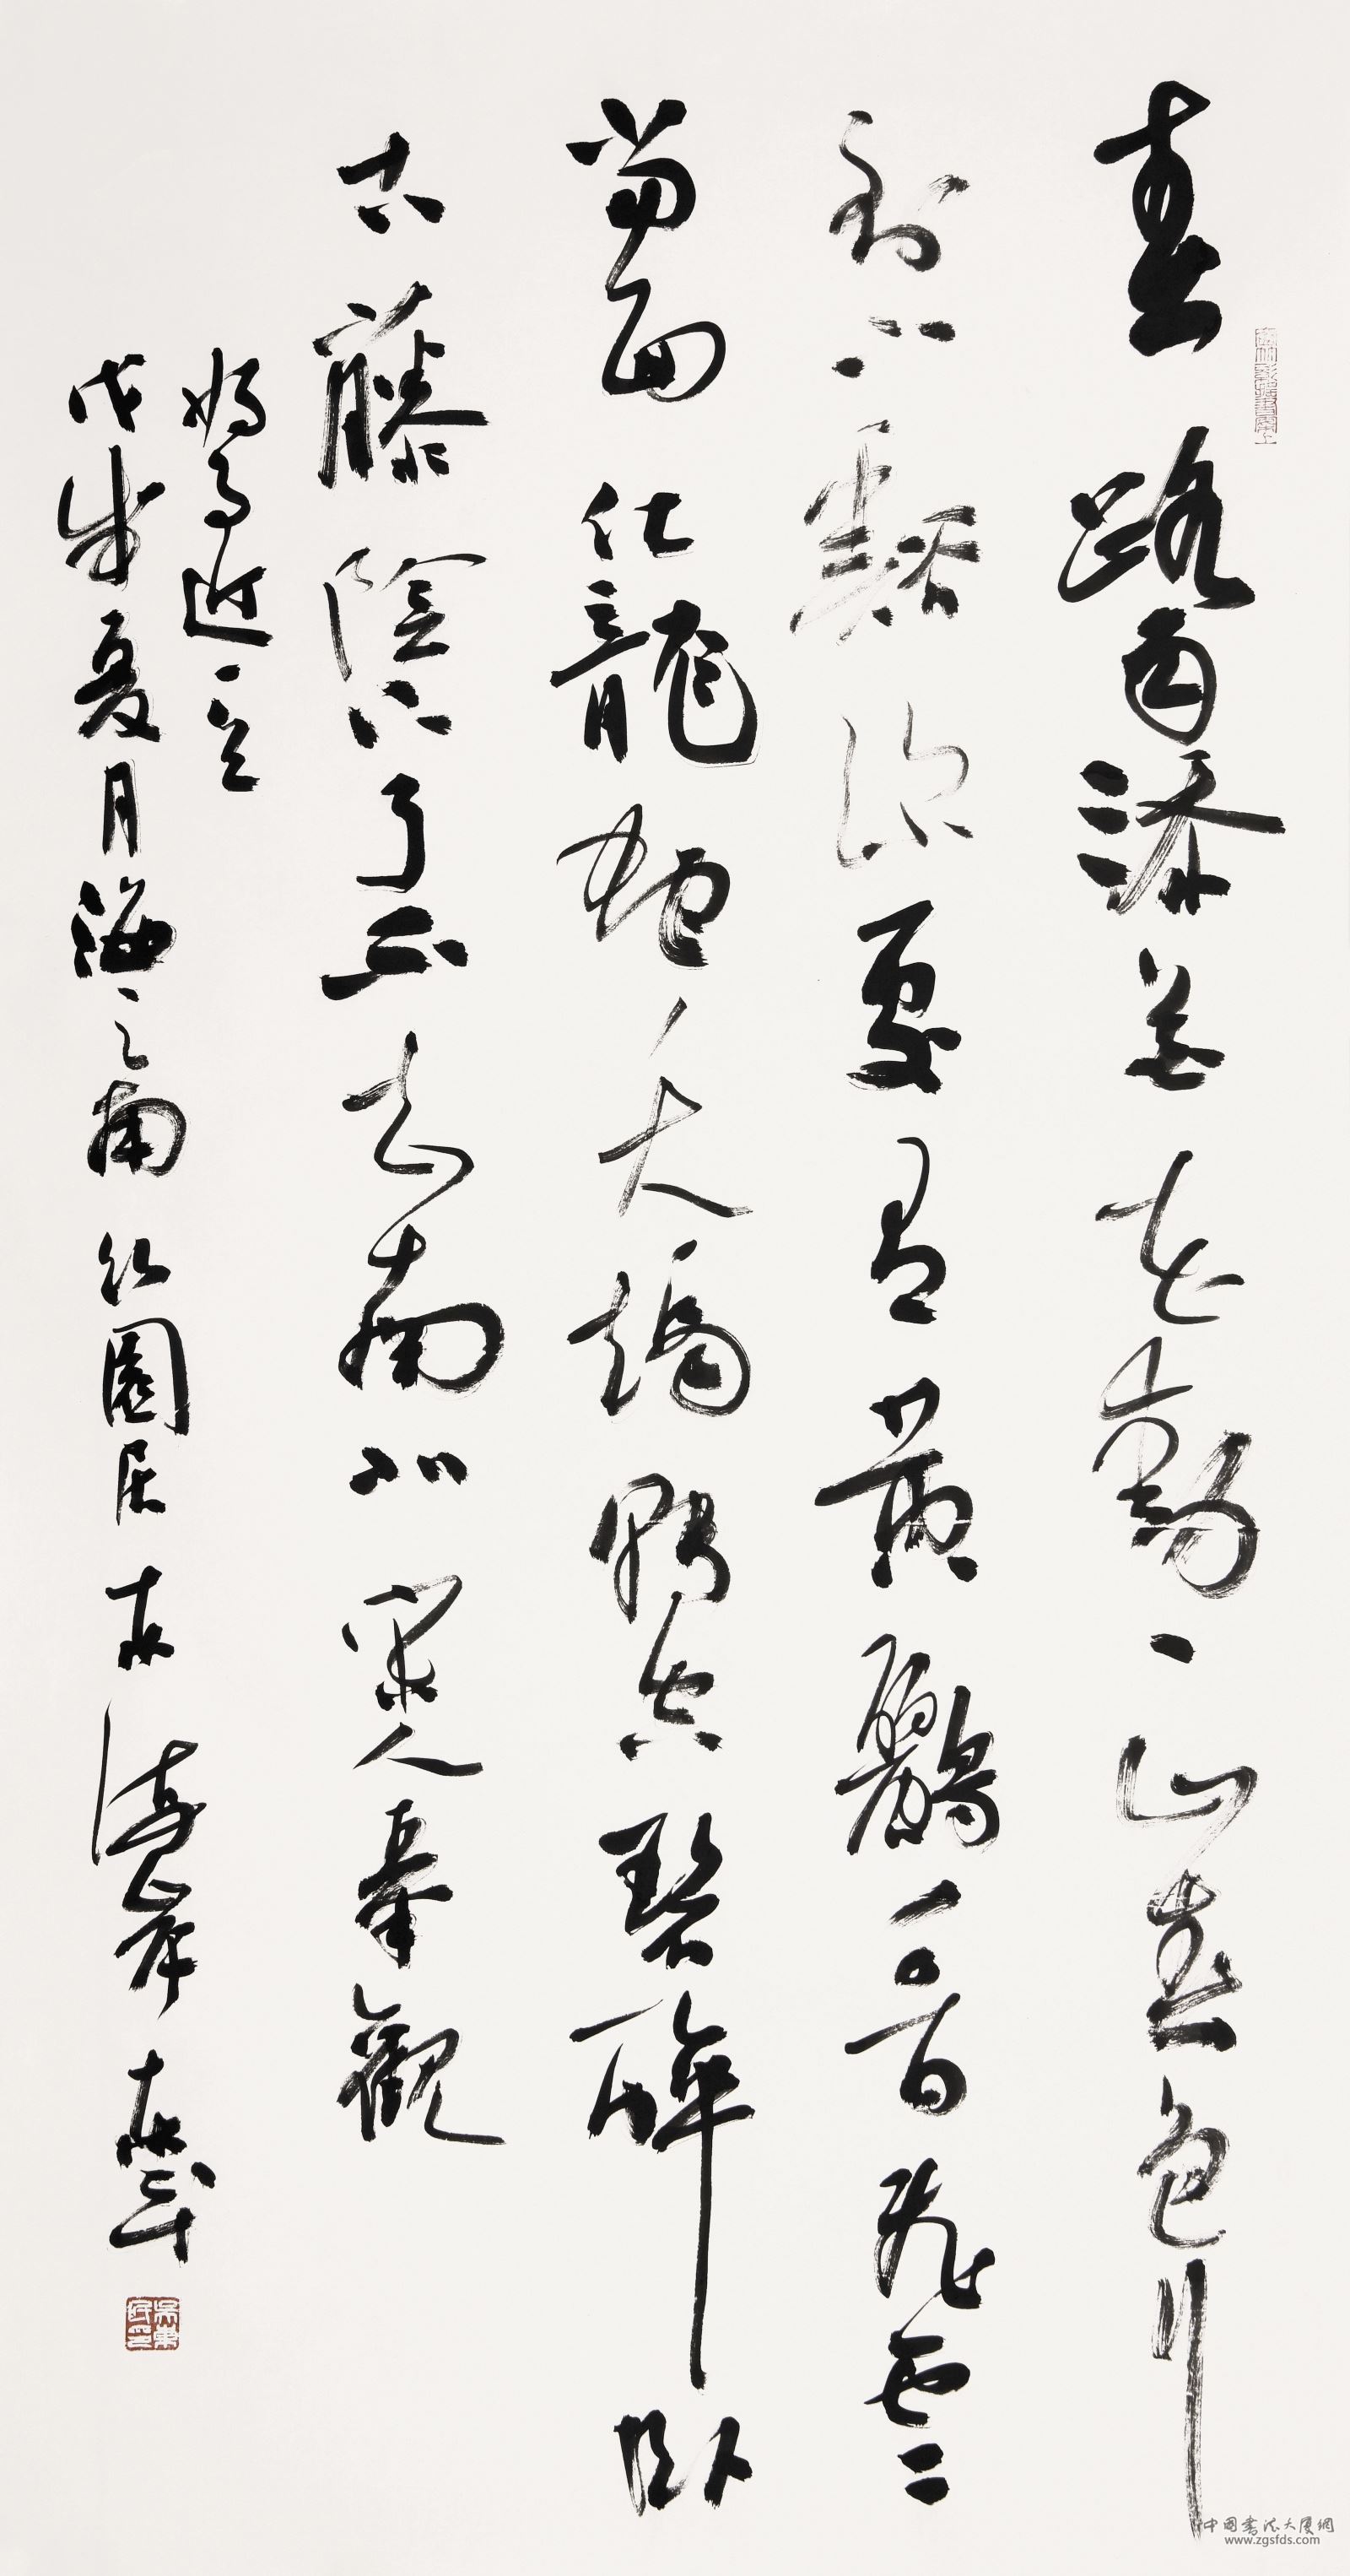 春路雨添花花動一山春色行
到小谿深處有黃鸝千百飛雲
當面化龍蛇夭矯轉空碧醉臥
古藤陰下了不知南北 宋人秦觀
好事近一首
戊戌夏月海之南紅園居 吳東民
中国書法大厦網
www.zgsfds.com